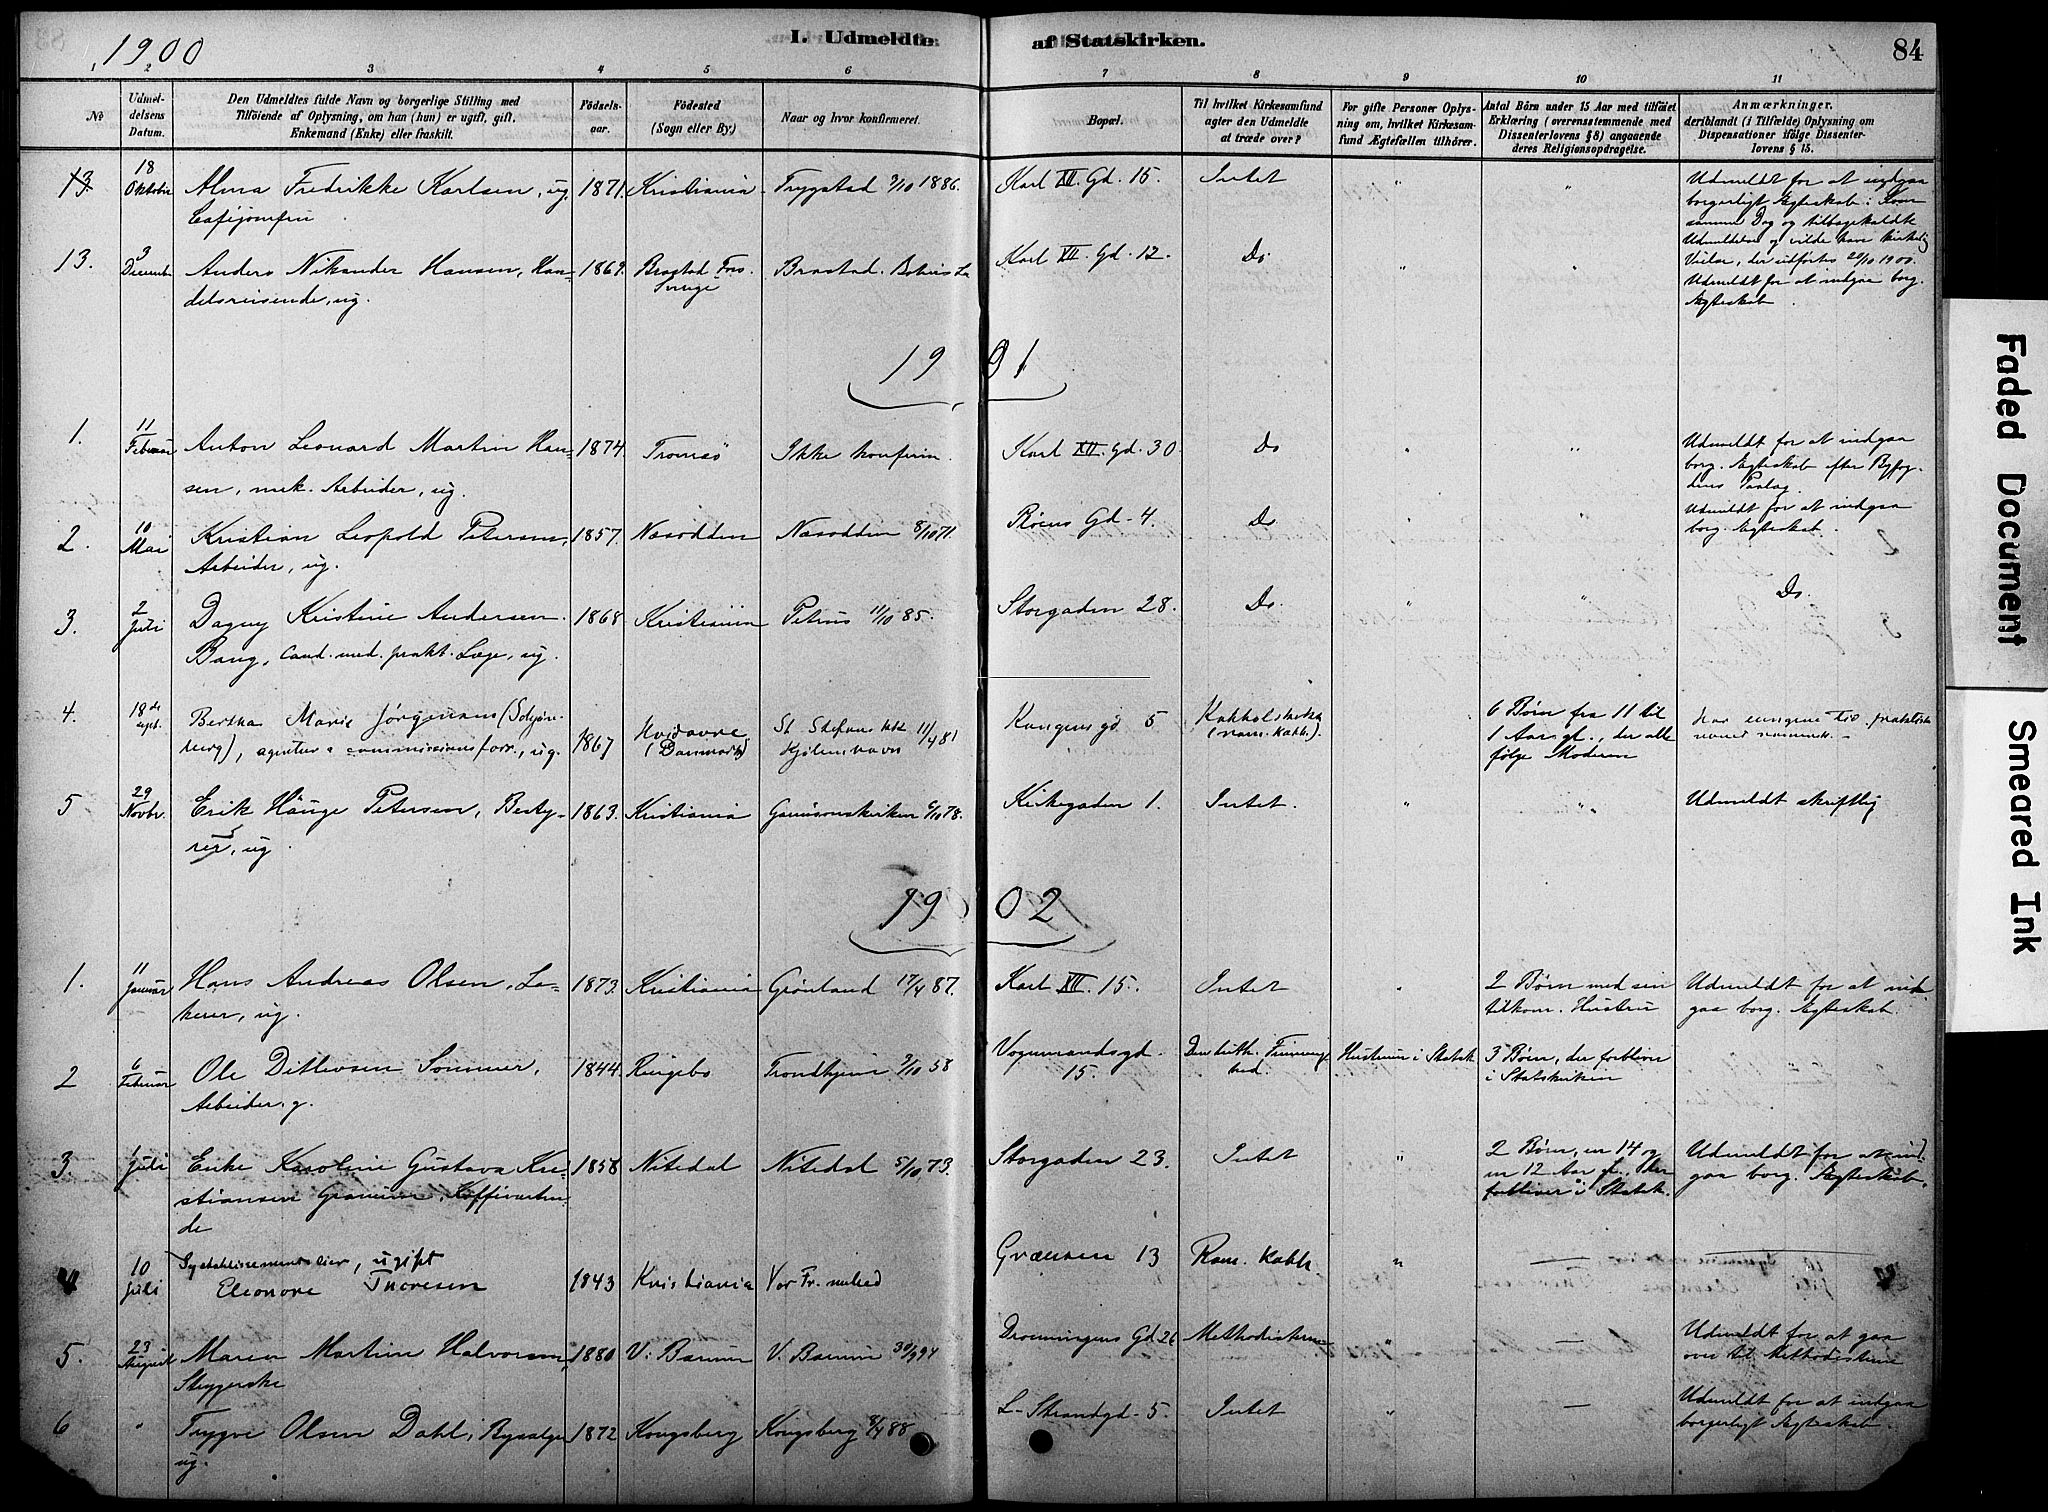 1900
I. Udmeldte af Statskirken.
84
1 2 3 4 5 6 7 8 9 10 11
No
Udmeldelsens Datum.
Den Udmeldtes fulde Navn og borgerlige Stilling med
Tilföiende af Oplysning, om han (hun) er ugift, gift,
Enkemand (Enke) eller fraskilt.
Födselsaar.
Födested
(Sogn eller By)
Naar og hvor konfirmeret.
Bopæl.
Til hvilket Kirkesamfund
agter den Udmeldte
at træde over?
For gifte Personer Oplysning om, hvilket Kirkesamfund Ægtefællen tilhörer.
Antal Börn under 15 Aar med tilföiet
Erklæring (overensstemmende med
Dissenterlovens § 8) angaaende
deres Religionsopdragelse.
Anmærkninger,
deriblandt (i Tilfælde) Oplysning om
Dispensationer ifölge Dissenterlovens § 15.
13. 18 Oktober Alma Fredrikke Karlsen, ug. 1871. Kristiania Trygstad 3/10 1886. Karl XII. Gd. 15. Intet " "
Udmeldt for at indgaa
borgerligt Ægteskab. Kom
samme Dag og tilbagekaldte
Udmeldelsen og vilde have kirkelig
Vielse, der udførtes 20/10 1900.
13. 3 Decemb. Anders Nikander Hansen, Han-
delsreisende, ug. 1869. Brastad Brastad. Karl XII. Gd. 12. Do " "
Udmeldt for at indgaa borg.
Ægteskab.
1901
1. 11 Februar Anton Leonard Martin Han-
sen, mek. Arbeider, ug. 1874. Tromsö Ikke konfirm. Karl XII. Gd. 30 Do " "
Udmeldt for at indgaa
borg. Ægteskab efter Byfog-
dens Paalæg.
2. 10 Mai Kristian Leopold Petersen,
Arbeider, ug. 1857. Næsodden Næsodden 8/10 71. Gd. 4. Do " "
Udmeldt for at indgaa
borg. Ægteskab.
3. 2 Juli Dagny Kristine Andersen
Bang, Cand. med. prakt. Læge, ug. 1868 Kristiania Petrus 11/10 85. Storgaden 28. Do " " Do.
4. 18de Sept. Bertha Marie Jörgensen
agentur & commissionsforr., ug. 1867 Hvidovre
(Danmark) St Stefans 11/4 81
Kjöbenhavn Kongens gd 5 Katholskekirke
(rom. kath.).
6 Börn fra 11 til
1 Aar gl., der alle
følge Moderen
5 29 Novbr. Erik Hauge Petersen, Besty-
rer, ug. 1863. Kristiania Garnisonskirken 6/10 78. Kirkegaden 1. Intet. " " Udmeldt skriftlig
1902
1. 11 Januar Hans Andreas Olsen, La-
kerer, ug. 1873. Kristiania Grönland 17/4 87. Karl XII. 15. Intet "
2 Börn med sin
tilkom. Hustru
Udmeldt for at ind-
gaa borg. Ægteskab.
2 6 Februar Ole Ditlevsen Sommer,
Arbeider, g. 1844 Ringebo Trondhjem 3/10 58 Vognmandsgd.
15. Den luth. Frimenighed. Hustruen i Statsk.
3 Börn, der forbliver
i Statskirken
3. 1 Juli Enke Karoline Gustava Kri-
stiansen Kaffivarten-
de 1858 Nitedal Nitedal 5/10 73. Storgaden 23. Intet "
2 Börn, en 14 og
en 12 Aar gl., der
forbliver i Statsk.
Udmeldt for at ind-
gaa borg. Ægteskab.
4 10 Juli ugift
Eleonore Thoresen 1843 Kristiania Vor Fr. Grænsen 13 Rom. kath " —
5. 23 August Maren Martine Halvorsen,
Strygerske 1880 V. Bærum V. Bærum 30/9 94 Dronningens Gd 26 Methodisterne " —
Udmeldt for at gaa
over til Methodisterne
6 " Trygve Olsen Dahl,
ug. 1872 Kongsberg Kongsberg 8/4 88 L. Strandgd. 5. Intet " —
Udmeldt for at indgaa
borgerligt Ægteskab.
Faded Document
Smeared Ink